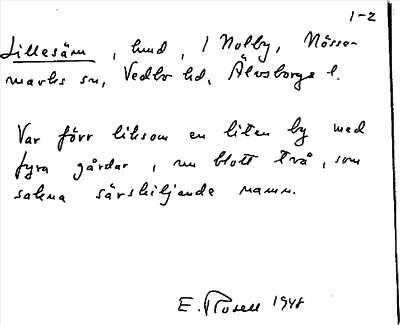 1-2
Lillesäm, hmd, i Nolby, Nösse-
marks sn, Vedbo hd, Älvsborgs l.
Var förr liksom en liten by med
fyra gårdar, nu blott två, som
sakna särskiljande namn.
E. Rosell 1948